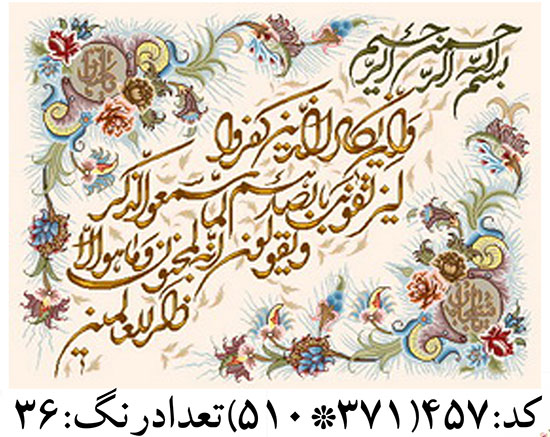 بسم الله الرحمن الرحیم
وان یکاد الذین کفروا
لیزلقونک بابصارهم لما سمعوا الذکر
و یقولون انه لمجنون وما هو الا
ذکر للعالمین
کد:۴۵۷(۳۷۱*۵۱۰)تعدادرنگ:۳۶